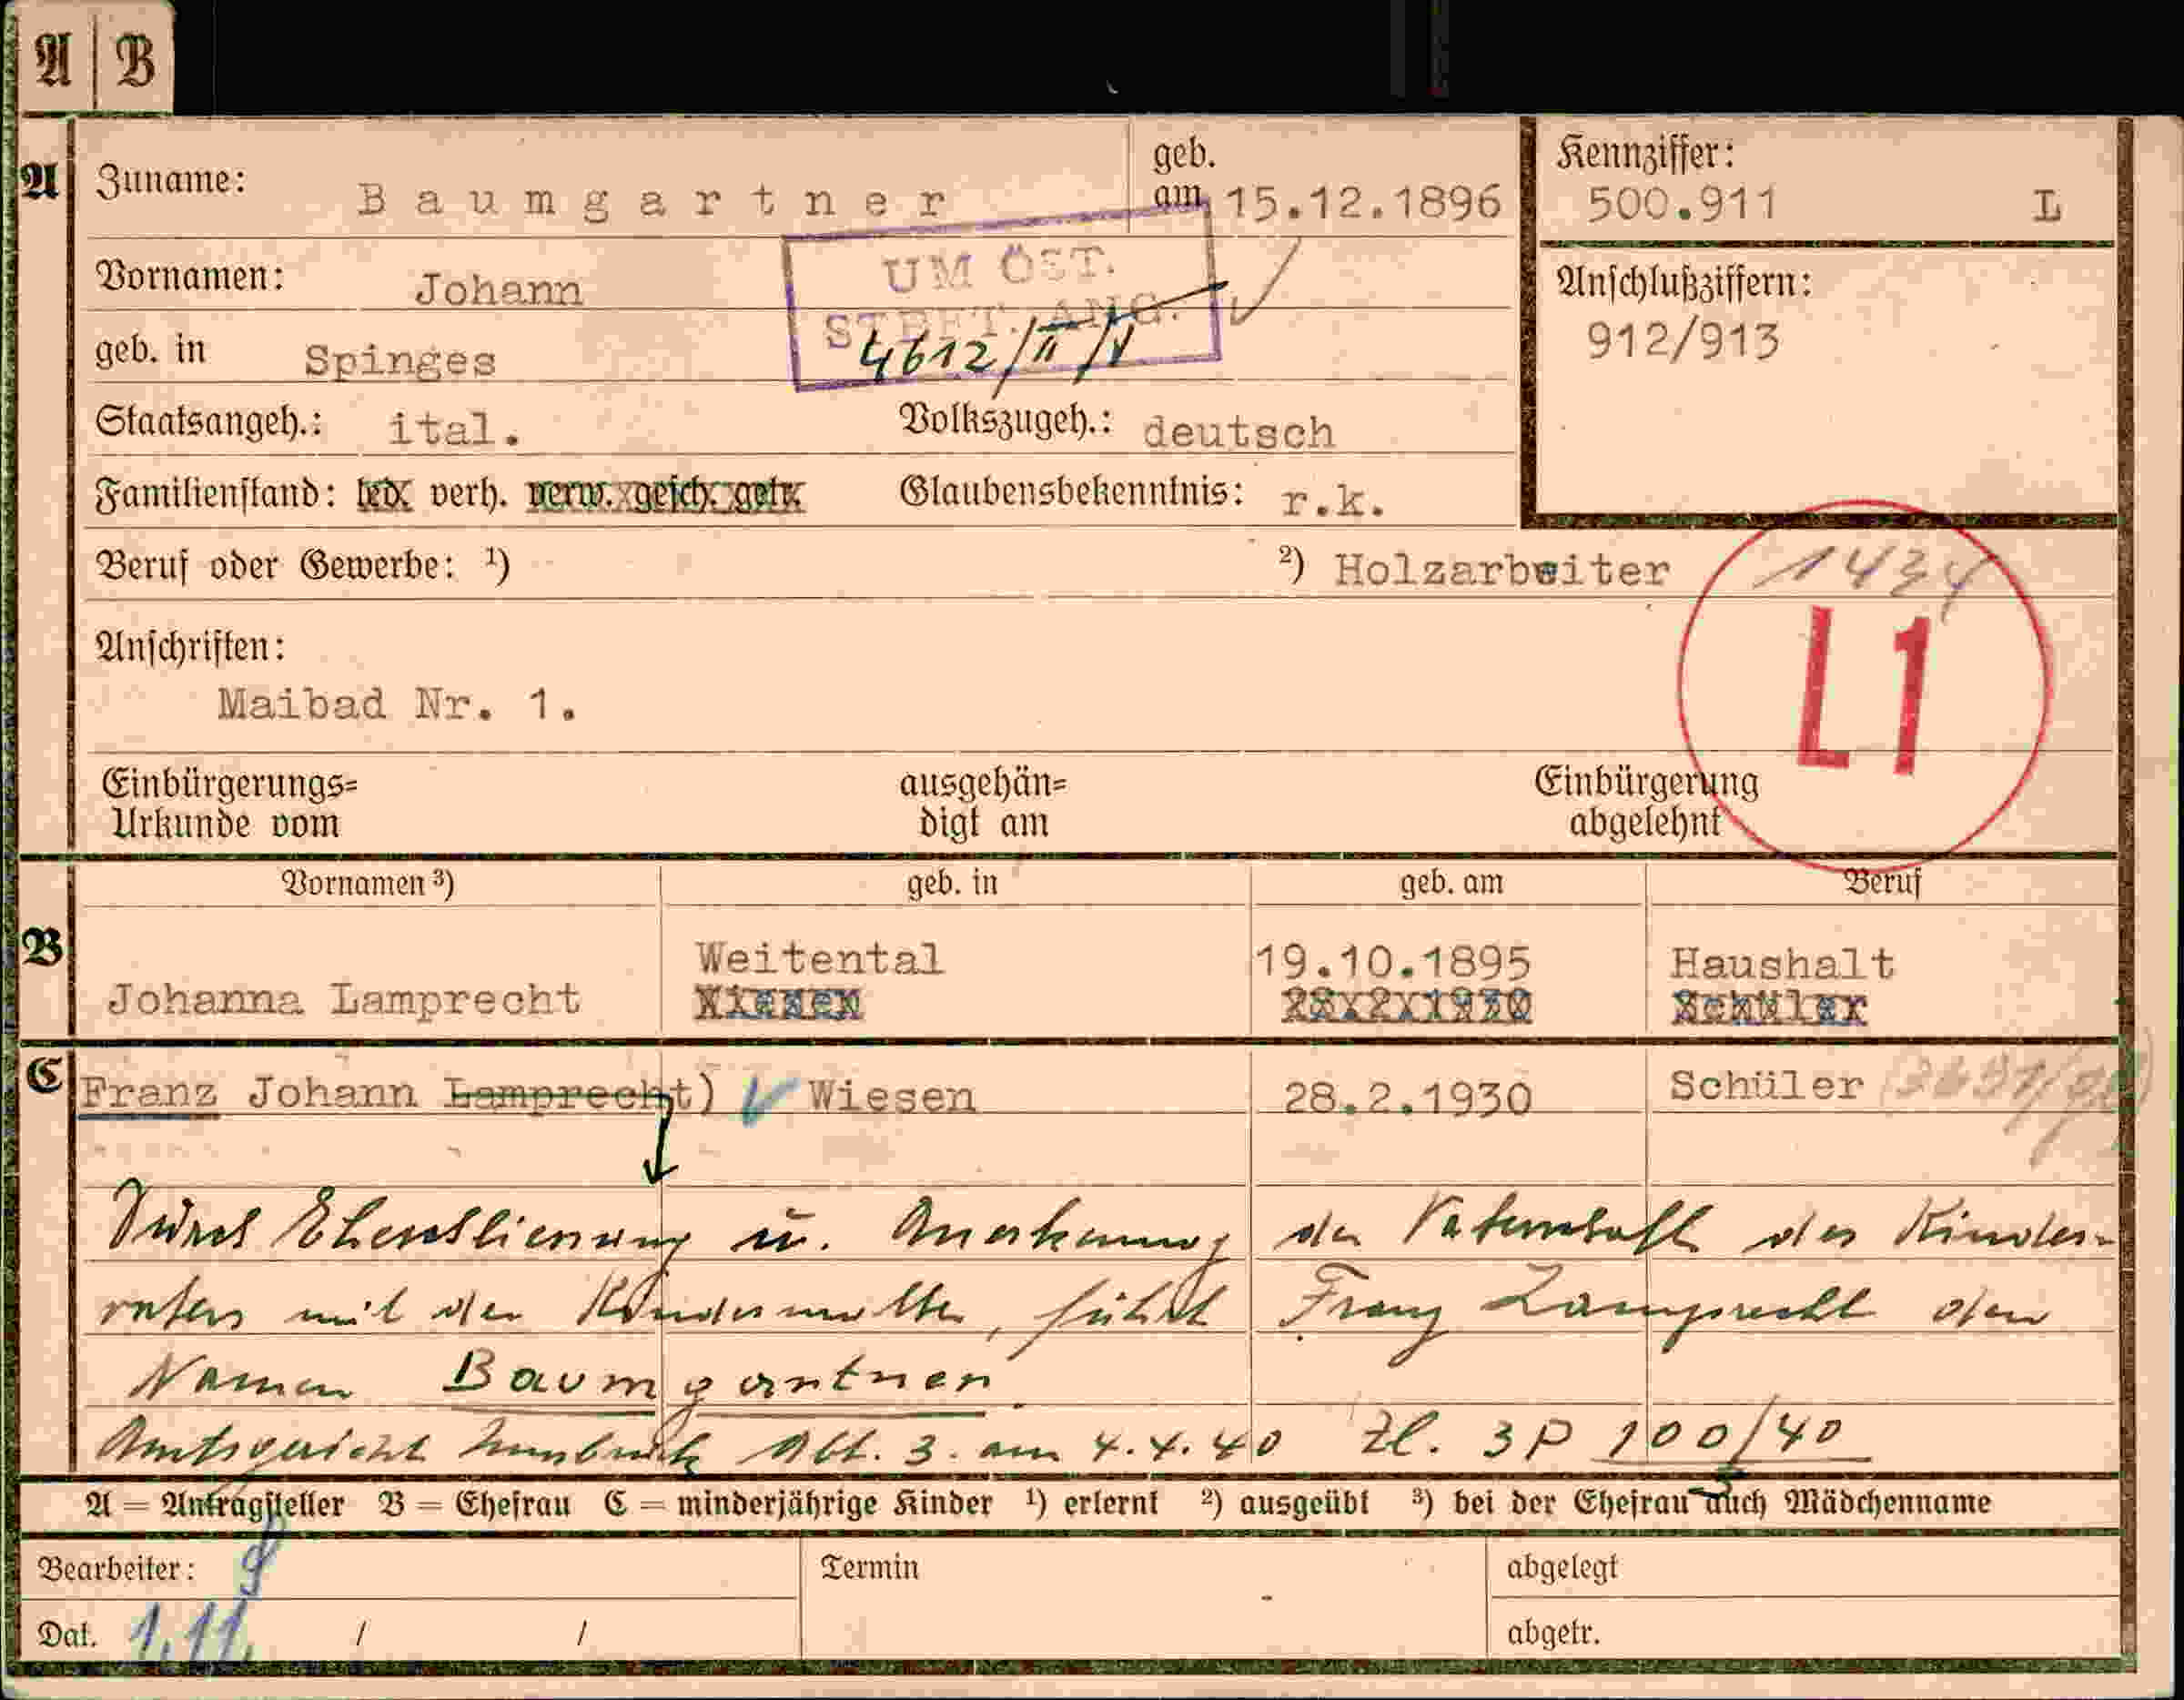 A B
A Zuname: Baumgartner geb. am 15.12.1896 Kennziffer: 500.911 L
Vornamen: Johann UM ÖST. Anschlußziffern:
STBFT. ANG. 912/913
4612/II/V
geb. in Spinges
Staatsangeh.: ital. Volkszugeh.: deutsch
Familienstand: led. verh. verw. gesch. getr. Glaubensbekenntnis: r.k.
Beruf oder Gewerbe: ¹) ²) Holzarbeiter 1434
L1
Anschriften:
Maibad Nr. 1.
Einbürgerungs= ausgehän= Einbürgerung
Urkunde vom digt am abgelehnt
Vornamen ³) geb. in geb. am Beruf
B Weitental 19.10.1895 Haushalt
Johanna Lamprecht Wiesen 28.2.1930 Schüler
C Franz Johann Lamprecht) Wiesen 28.2.1930 Schüler
Durch Eheschliessung u. Anerkennung der Vaterschaft des Kindes-
vaters mit der Kindesmutter, führt Franz Lamprecht den
Namen Baumgartner.
Amtsgericht Innsbruck Abt. 3. am 4.4.40 Zl. 3P 100/40
A = Antragsteller B = Ehefrau C = minderjährige Kinder ¹) erlernt ²) ausgeübt ³) bei der Ehefrau auch Mädchenname
Bearbeiter: Termin abgelegt
Dat. 1.11. / / abgetr.